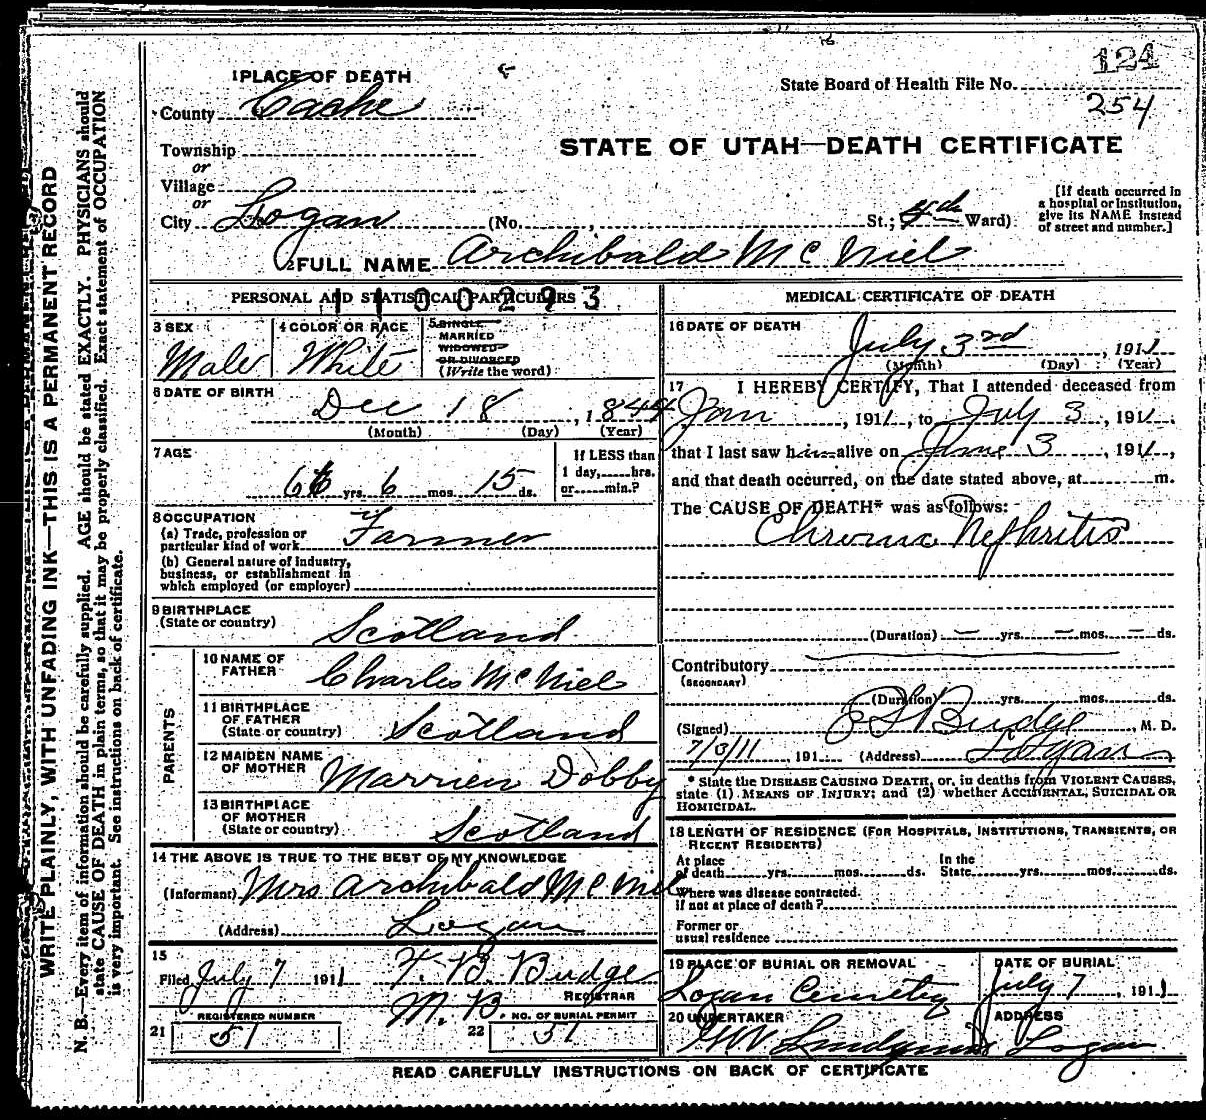 124
State Board of Health File No.
254
1 PLACE OF DEATH
County Cache
STATE OF UTAH—DEATH CERTIFICATE
Township
or
Village
or
City Logan (No. , St.; Ward)
[If death occurred in a hospital or institution, give its NAME instead of street and number.]
2 FULL NAME Archibald McNiel
PERSONAL AND STATISTICAL PARTICULARS
1100293
3 SEX
Male
4 COLOR OR RACE
White
5 SINGLE
MARRIED
WIDOWED
OR DIVORCED
(Write the word)
6 DATE OF BIRTH
Dec 18, 1844
(Month) (Day) (Year)
7 AGE
66 yrs. 6 mos. 15 ds.
If LESS than
1 day, hrs.
or min.?
8 OCCUPATION
(a) Trade, profession or
particular kind of work Farmer
(b) General nature of industry,
business, or establishment in
which employed (or employer)
9 BIRTHPLACE
(State or country) Scotland
PARENTS
10 NAME OF
FATHER Charles McNiel
11 BIRTHPLACE
OF FATHER
(State or country) Scotland
12 MAIDEN NAME
OF MOTHER Marrien Dobby
13 BIRTHPLACE
OF MOTHER
(State or country) Scotland
14 THE ABOVE IS TRUE TO THE BEST OF MY KNOWLEDGE
(Informant) Mrs Archibald McNiel
(Address) Logan
15
Filed July 7 1911 T. B. Budge
M.D. REGISTRAR
REGISTERED NUMBER
21 51
NO. OF BURIAL PERMIT
22 51
MEDICAL CERTIFICATE OF DEATH
16 DATE OF DEATH
July 3rd, 1911
(Month) (Day) (Year)
17 I HEREBY CERTIFY, That I attended deceased from
Jan, 1911, to July 3, 1911,
that I last saw him alive on June 3, 1911,
and that death occurred, on the date stated above, at m.
The CAUSE OF DEATH* was as follows:
Chronic Nephritis
(Duration) — yrs. — mos. — ds.
Contributory
(SECONDARY)
(Duration) yrs. mos. ds.
(Signed) Budge, M. D.
7/3/11 191 (Address) Logan
* State the DISEASE CAUSING DEATH, or, in deaths from VIOLENT CAUSES,
state (1) MEANS OF INJURY; and (2) whether ACCIDENTAL, SUICIDAL OR
HOMICIDAL.
18 LENGTH OF RESIDENCE (FOR HOSPITALS, INSTITUTIONS, TRANSIENTS, OR
RECENT RESIDENTS)
At place
of death yrs. mos. ds.
In the
State yrs. mos. ds.
Where was disease contracted
if not at place of death?
Former or
usual residence
19 PLACE OF BURIAL OR REMOVAL
Logan Cemetry
DATE OF BURIAL
July 7, 1911
20 UNDERTAKER
ADDRESS
Logan
READ CAREFULLY INSTRUCTIONS ON BACK OF CERTIFICATE
WRITE PLAINLY, WITH UNFADING INK—THIS IS A PERMANENT RECORD
N. B.—Every item of information should be carefully supplied. AGE should be stated EXACTLY. PHYSICIANS should
state CAUSE OF DEATH in plain terms, so that it may be properly classified. Exact statement of OCCUPATION
is very important. See instructions on back of certificate.